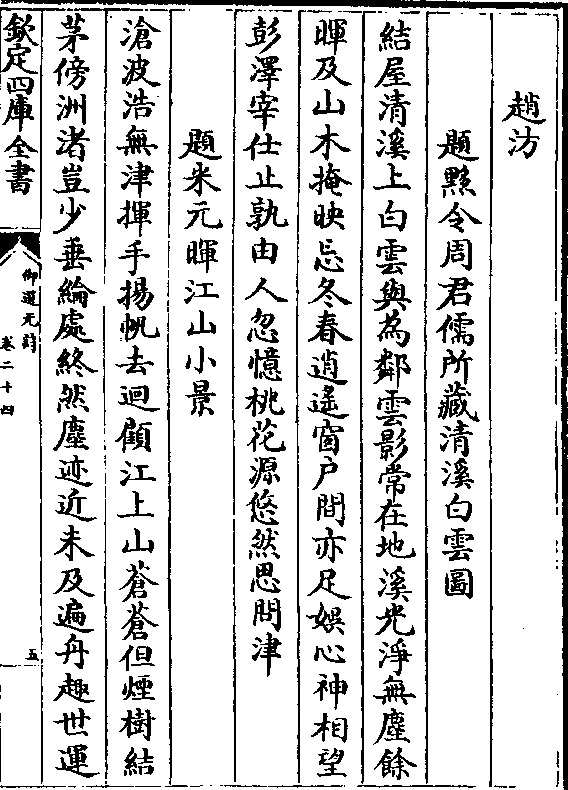 趙汸
題黟令周君儒所藏清溪白雲圖
結屋清溪上白雲與為鄰雲影常在地溪光淨無塵餘
暉及山木掩映忘冬春逍遙窗户間亦足娯心神相望
彭澤宰仕止孰由人忽憶桃花源悠然思問津
題米元暉江山小景
滄波浩無津揮手揚帆去迴顧江上山蒼蒼但煙樹結
茅傍洲渚豈少垂綸處終然塵迹近未及遍舟趣世運
欽定四庫全書
御選元詩
卷二十四
五